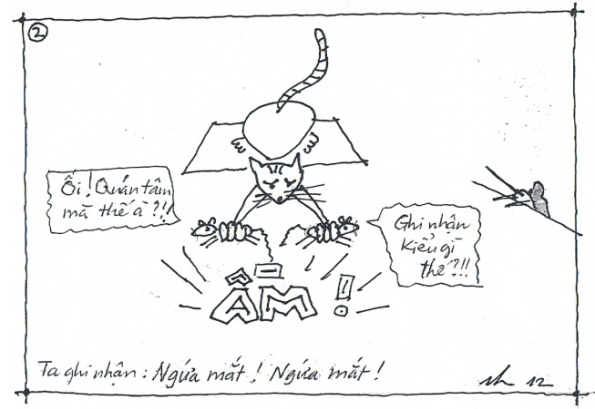 2
Ôi! Quán tâm
mà thế à?!!
Ghi nhận
kiểu gì
thế?!!
ẦM!
Ta ghi nhận: Ngứa mắt! Ngứa mắt!
12